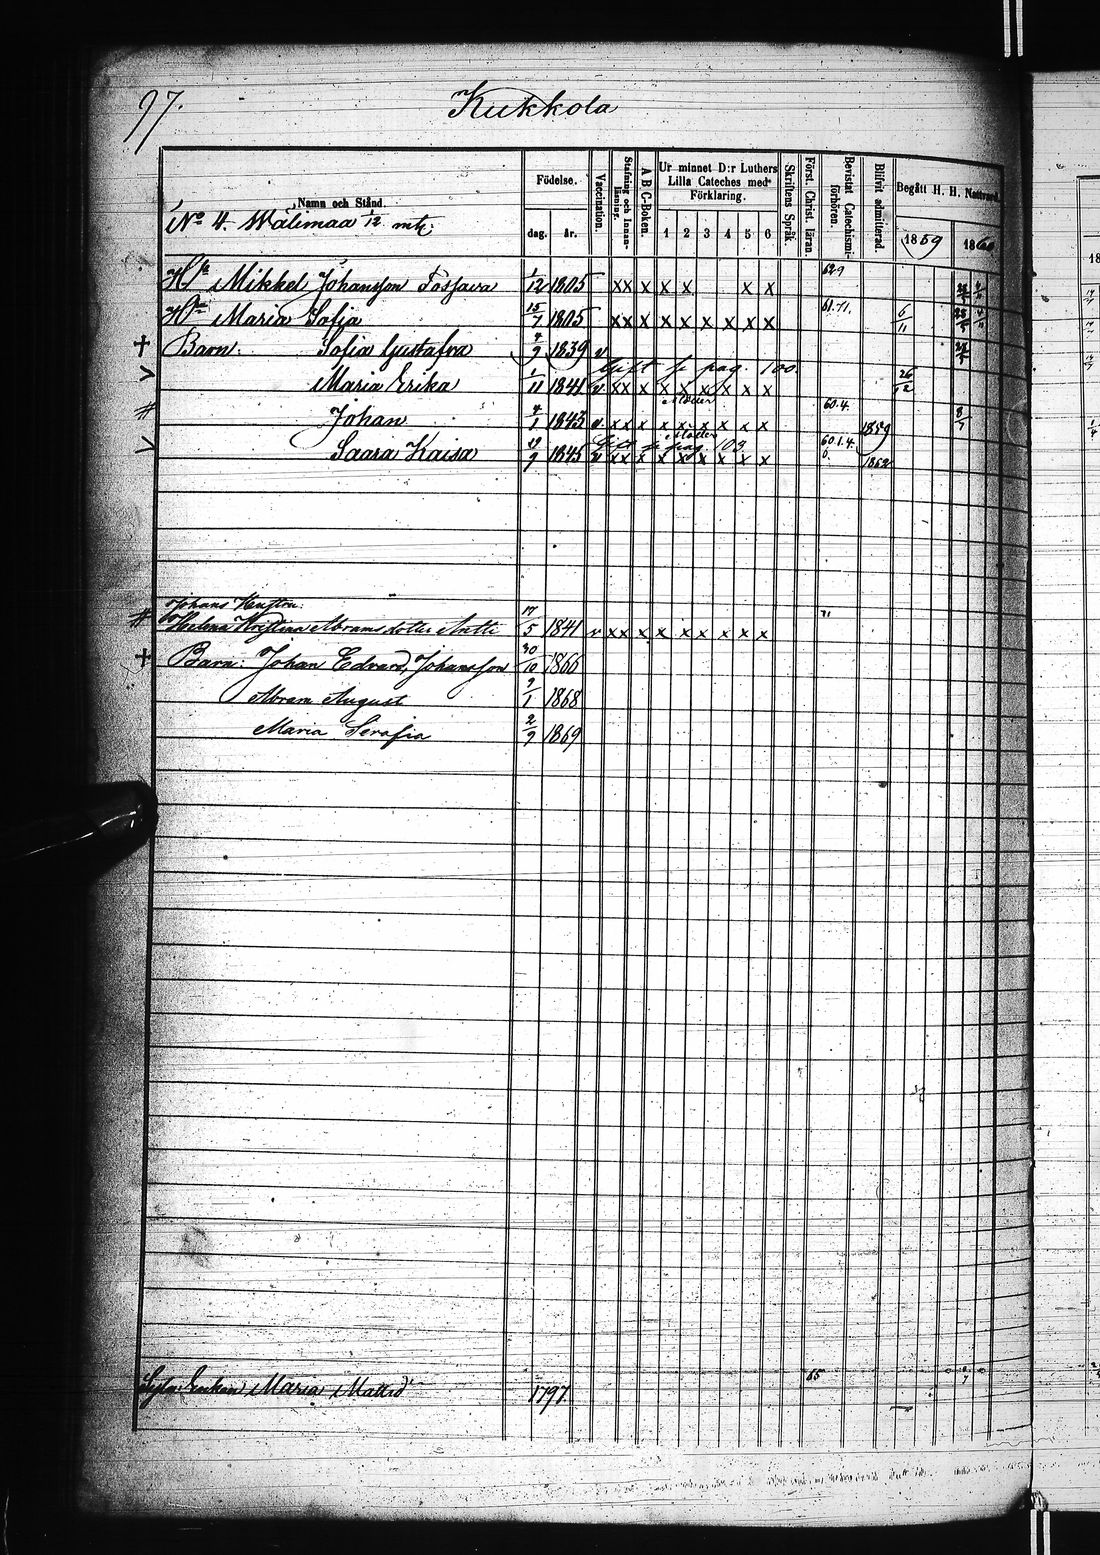 97.
Kukkola
Namn och Stånd.
Födelse.
dag. år.
Vaccination.
Stafning och Innanläsning.
A B C-Boken.
Ur minnet D:r Luthers Lilla Cateches med Förklaring.
1 2 3 4 5 6
Skriftens Språk
Först. Christ. läran.
Bevistat Catechismiförhören.
Blifvit admitterad.
Begått H. H. Nattvard.
1859 1860
No 4. Wälimaa 1/12 mtl.
Mikkel Johansson 1/12 1805 xx x x x x x 62.9
Maria Sofia 15/7 1805 xx x x x x x x x 61.71. 6/11
+ Barn: Sofia Gustafva 4/9 1839 v
Gift se pag. 100.
v Maria Erika 1/11 1841 v xx x x x x x x x 26/12
# Johan 4/1 1843 v xx x x x x x x x 60.4. 1859 8/7
Gift se pag. 109
v Saara Kaisa 9 1845 v xx x x x x x x x 60.1.4. 6. 1862
Johans Hustru:
# Helena Kristina Abramsdotter Antti 17/5 1841 v xx x x x x x x x 71
+ Barn: Johan Edvard, Johansson 30/10 1866
Abram August 9/1 1868
Maria Serafia 2/9 1869
Enkan Maria Mattsd 1797. 65